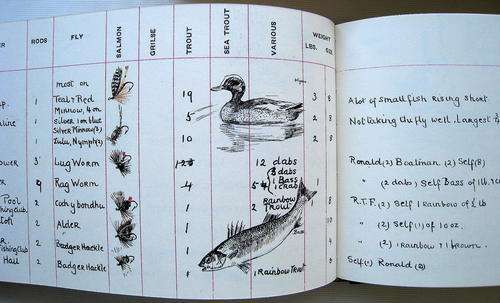 RODS FLY SALMON GRILSE TROUT SEA TROUT VARIOUS WEIGHT
LBS.
most on
1 Teal & Red 19 3 8
Minnow, 4 on
1 Silver 1 on blue 5 2 8
Silver Minnow(2)
1 Zulu, Nymph(2) 10 2 8
3 Lug Worm 12 dabs
9 Rag Worm 4 3 dabs
1 Bass
1 crab
2 Coch y bondhu 1 2 Rainbow
Trout
2 Alder 1
Bass
2 Badger Hackle 1
2 Badger Hackle 1 Rainbow Trout
Pool
Hall
A lot of small fish rising short
Not taking the fly well. Largest
Ronald(2) Boatman. (2) Self(8)
" (2 dabs) Self Bass of 1lb.
R.T.F. (2) Self 1 rainbow of
" (2) Self (1) of 10 oz.
" (2) 1 Rainbow 1 brown.
Self(1) Ronald (2)